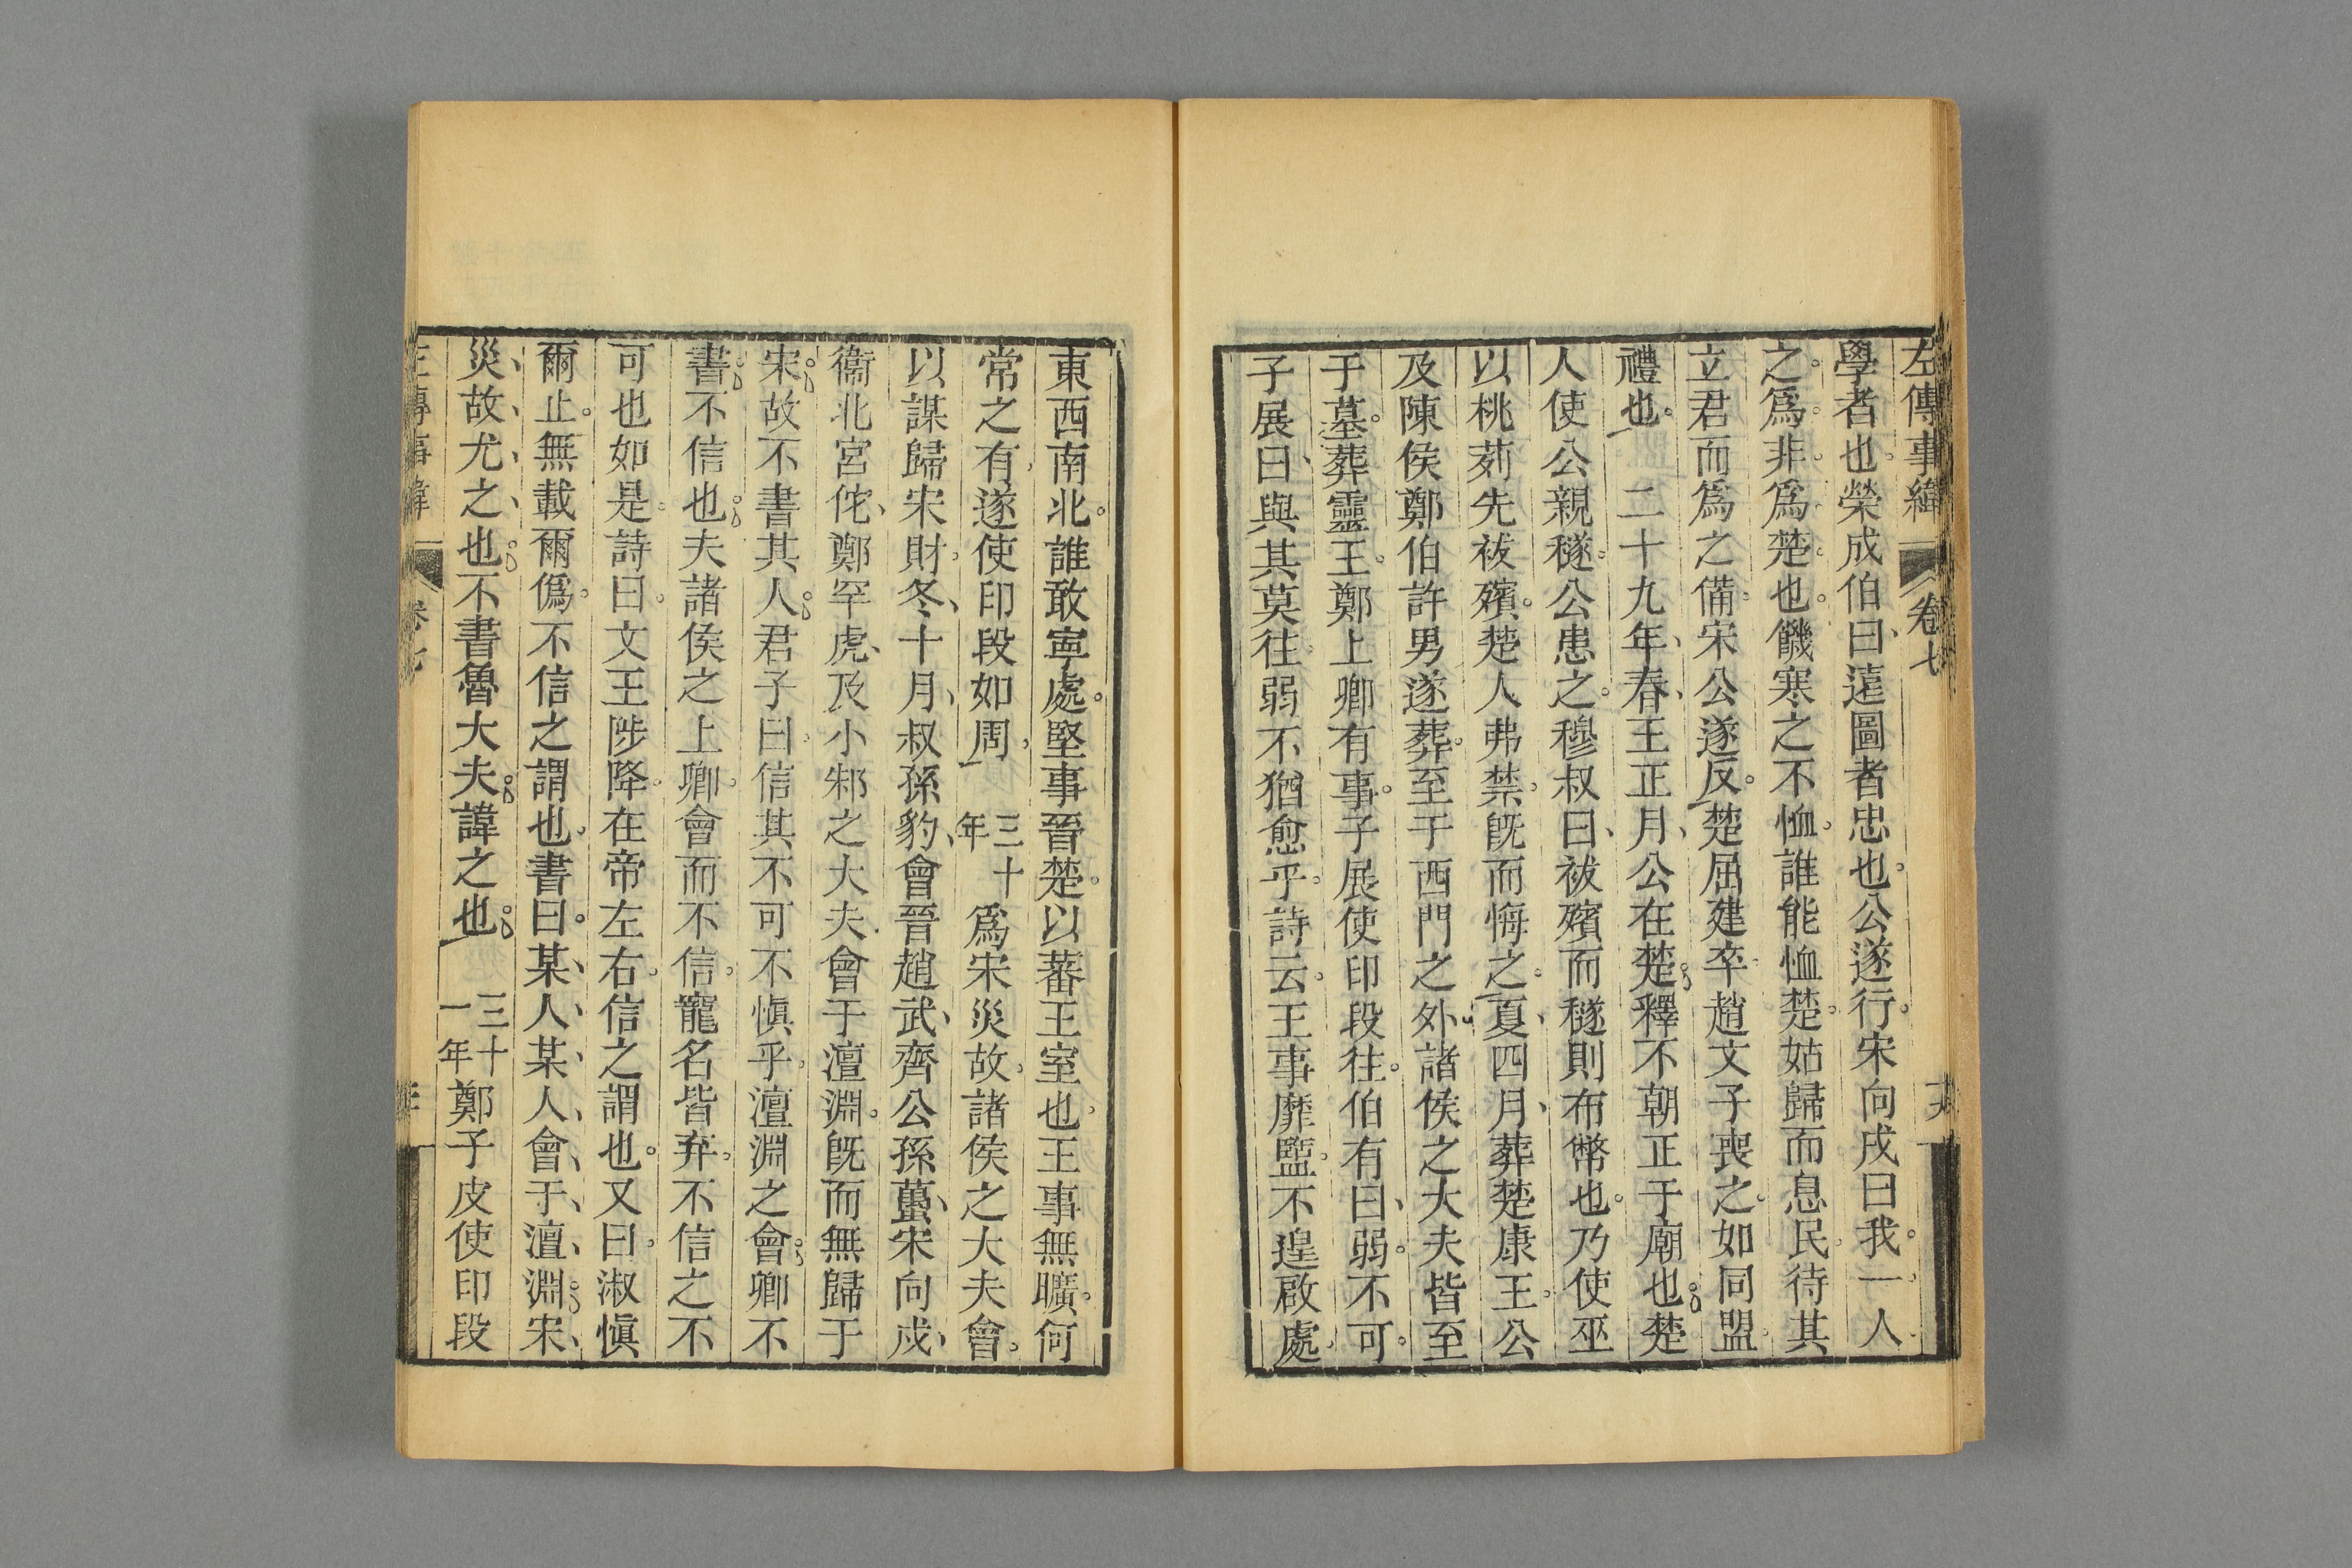 左傳事緯 卷七
學者也榮成伯曰遠圖者忠也公遂行宋向戌曰我一人
之爲非爲楚也饑寒之不恤誰能恤楚姑歸而息民待其
立君而爲之備宋公遂反楚屈建卒趙文子喪之如同盟
禮也 二十九年春王正月公在楚釋不朝正于廟也楚
人使公親襚公患之穆叔曰祓殯而襚則布幣也乃使巫
以桃茢先祓殯楚人弗禁既而悔之夏四月葬楚康王公
及陳侯鄭伯許男遂葬至于西門之外諸侯之大夫皆至
于墓葬靈王鄭上卿有事子展使印段往伯有曰弱不可
子展曰與其莫往弱不猶愈乎詩云王事靡盬不遑啟處
東西南北誰敢寧處堅事晉楚以蕃王室也王事無曠何
常之有遂使印段如周 三十年 爲宋災故諸侯之大夫會
以謀歸宋財冬十月叔孫豹會晉趙武齊公孫蠆宋向戌
衞北宮佗鄭罕虎及小邾之大夫會于澶淵既而無歸于
宋故不書其人君子曰信其不可不愼乎澶淵之會卿不
書不信也夫諸侯之上卿會而不信寵名皆弃不信之不
可也如是詩曰文王陟降在帝左右信之謂也又曰淑愼
爾止無載爾僞不信之謂也書曰某人某人會于澶淵宋
災故尤之也不書魯大夫諱之也 三十一年鄭子皮使印段
左傳事緯 卷七